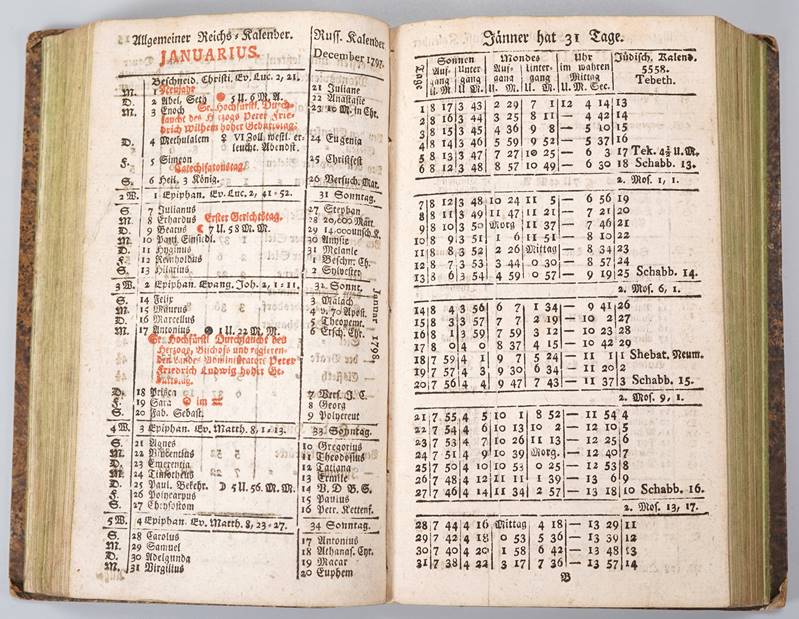 Allgemeiner Reichs-Kalender.
JANUARIUS.
Russ. Kalender
December 1797.
Beschneid. Christi, Ev. Luc. 2, 21.
M. 1 Neujahr 21 Juliane
D. 2 Abel, Seth 5 U. 6 M. A. 22 Anastasie
M. 3 Enoch Sr. Hochfürstl. Durch- 23 10 M. in Chr.
lauche des Herzogs Peter Frie-
drich Wilhelm hoher Geburtstag.
D. 4 Methusalem VI Zoll westl. er- 24 Eugenia
leucht. Abendst.
F. 5 Simeon 25 Christfest
Catechisationstag.
S. 6 Heil. 3 König. 26 Versuch. Mar.
2 W. 1 Epiphan. Ev. Luc. 2, 41-52. 31 Sonntag.
S. 7 Julianus 27 Stephan
M. 8 Erhardus Erster Gerichtstag. 28 20,000 Märt.
D. 9 Beatus 7 U. 58 M. M. 29 14,000 unsch. K.
M. 10 Paul. Einsiedl. 30 Anysie
D. 11 Hyginus 31 Melanie
F. 12 Reinholdus 1 Beschn. Ch.
S. 13 Hilarius 2 Sylvester
3 W. 2 Epiphan. Evang. Joh. 2, 1-11. 32. Sonnt.
Januar 1798.
S. 14 Felix 3 Malach
M. 15 Maurus 4 v. 70 Apost.
D. 16 Marcellus 5 Theopemt.
M. 17 Antonius 1 U. 22 M. M. 6 Ersch. Chr.
Sr. Hochfürstl. Durchlauche des
Herzogs, Bischofs und regieren-
den Landes Administrator Peter
Friedrich Ludwig hoher Ge-
burtstag.
D. 18 Priska 7 Vers. J. C.
F. 19 Sara im 8 Georg
S. 20 Fab. Sebast. 9 Polyeuct
4 W. 3 Epiphan. Ev. Matth. 8, 1-13. 33 Sonntag.
S. 21 Agnes 10 Gregorius
M. 22 Vincentius 11 Theodosius
D. 23 Emerentia 12 Tatiana
M. 24 Timotheus 13 Ermile
D. 25 Paul. Bekehr. 5 U. 56. M. M. 14 V. D. B. S.
F. 26 Polycarpus 15 Paulus
S. 27 Chrysostom 16 Petr. Kettenf.
5 W. 4 Epiphan. Ev. Matth. 8, 23-27. 34 Sonntag.
S. 28 Carolus 17 Antonius
M. 29 Samuel 18 Athanas. Cyr.
D. 30 Adelgunda 19 Macar
M. 31 Virgilius 20 Euphem
Jänner hat 31 Tage.
Tage Sonnen Mondes Uhr Jüdisch. Kalend.
Auf- Unter Auf- Unter- im wahren 5558.
gang gang gang gang Mittag Tebeth.
U. M. U. M. U. M. U. M. U. M. Sec.
1 8 17 3 43 2 29 7 1 12 4 14 13
2 8 16 3 44 3 25 8 11 — 4 42 14
3 8 15 3 45 4 36 9 8 — 5 10 15
4 8 14 3 46 5 59 9 52 — 5 37 16
5 8 13 3 47 7 27 10 25 — 6 3 17 Tek. 4½ U. M.
6 8 12 3 48 8 57 10 49 — 6 30 18 Schabb. 13.
2. Mos. 1, 1.
7 8 12 3 48 10 24 11 5 — 6 56 19
8 8 11 3 49 11 47 11 21 — 7 21 20
9 8 10 3 50 Morg 11 37 — 7 46 21
10 8 9 3 51 1 6 11 51 — 8 10 22
11 8 8 3 52 2 26 Mittag — 8 34 23
12 8 7 3 53 3 44 0 30 — 8 57 24
13 8 6 3 54 4 59 0 57 — 9 19 25 Schabb. 14.
2. Mos. 6, 1.
14 8 4 3 56 6 7 1 34 — 9 41 26
15 8 3 3 57 7 7 2 19 — 10 2 27
16 8 1 3 59 7 59 3 12 — 10 23 28
17 8 0 4 0 8 37 4 15 — 10 42 29
18 7 59 4 1 9 7 5 24 — 11 1 1 Shebat. Neum.
19 7 57 4 3 9 30 6 34 — 11 20 2
20 7 56 4 4 9 47 7 43 — 11 37 3 Schabb. 15.
2. Mos. 9, 1.
21 7 55 4 5 10 1 8 52 — 11 54 4
22 7 54 4 6 10 13 10 2 — 12 10 5
23 7 53 4 7 10 26 11 13 — 12 25 6
24 7 51 4 9 10 39 Morg. — 12 40 7
25 7 50 4 10 10 53 0 25 — 12 53 8
26 7 48 4 12 11 11 1 39 — 13 6 9
27 7 46 4 14 11 34 2 57 — 13 18 10 Schabb. 16.
2. Mos. 13, 17.
28 7 44 4 16 Mittag 4 18 — 13 29 11
29 7 42 4 18 0 53 5 36 — 13 39 12
30 7 40 4 20 1 58 6 42 — 13 48 13
31 7 38 4 22 3 17 7 36 — 13 57 14
B